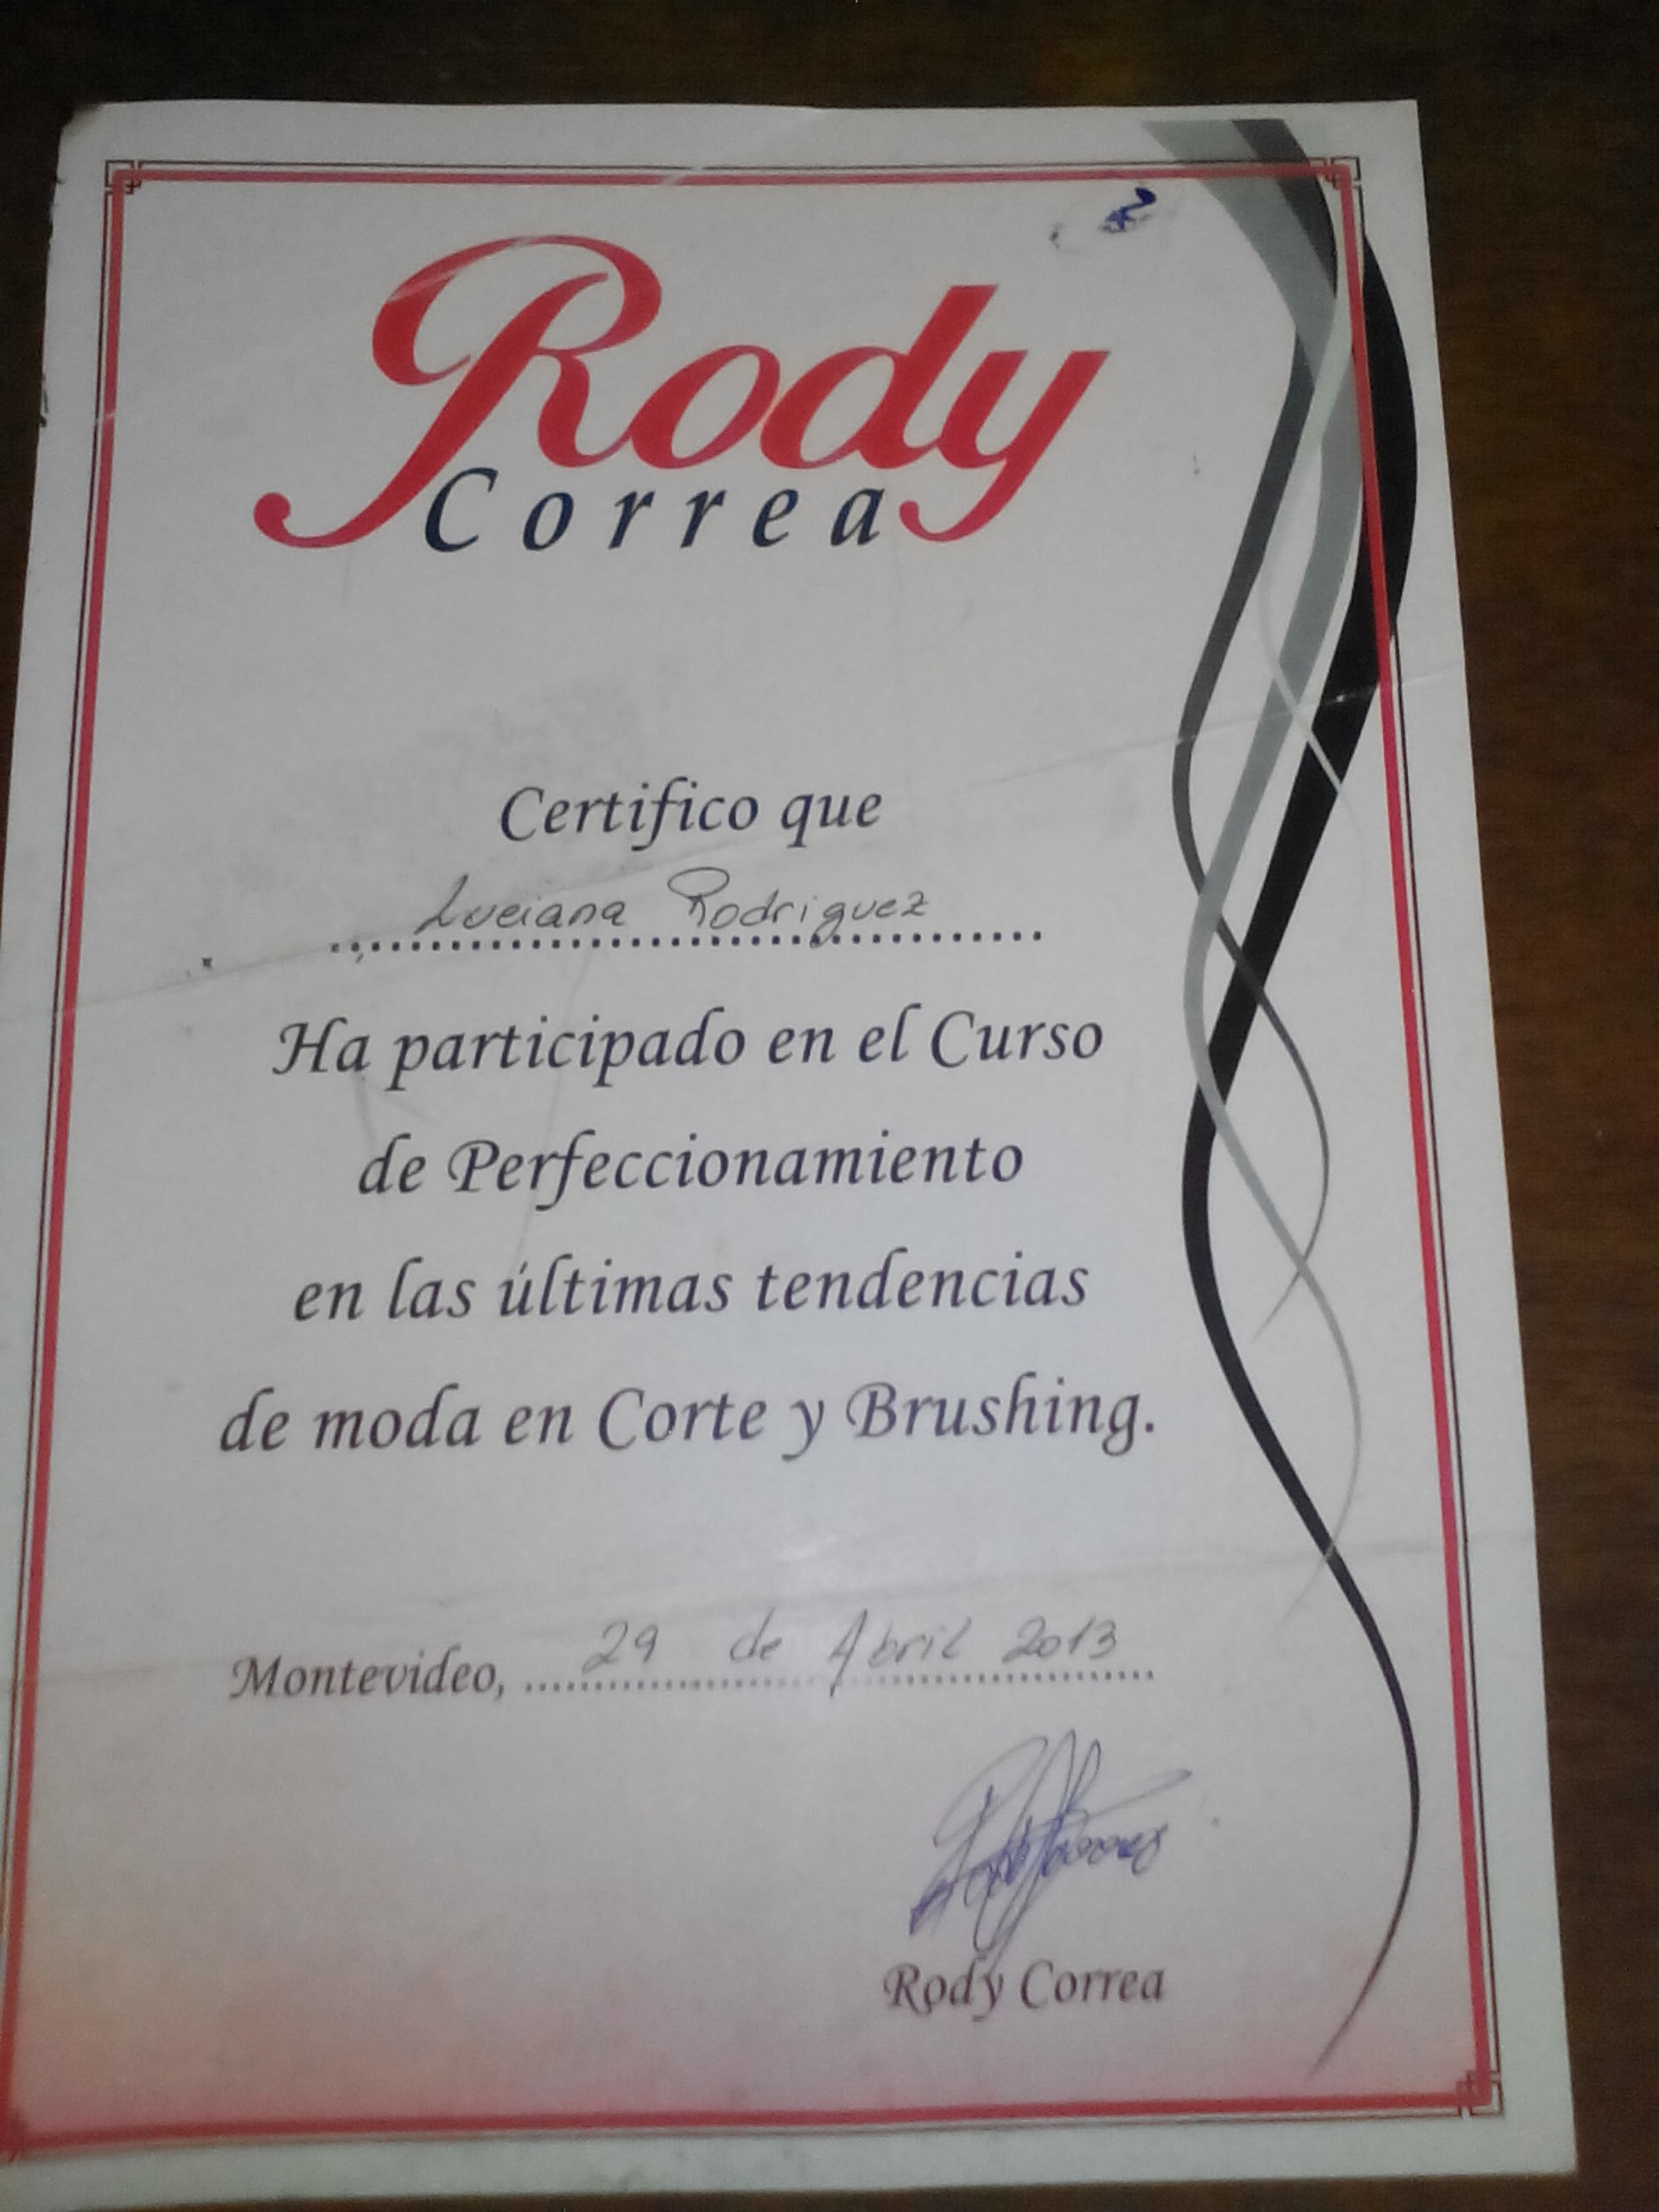 Rody
Correa
Certifico que
Luciana Rodriguez
Ha participado en el Curso
de Perfeccionamiento
en las últimas tendencias
de moda en Corte y Brushing.
Montevideo, 29 de Abril 2013
Rody Correa